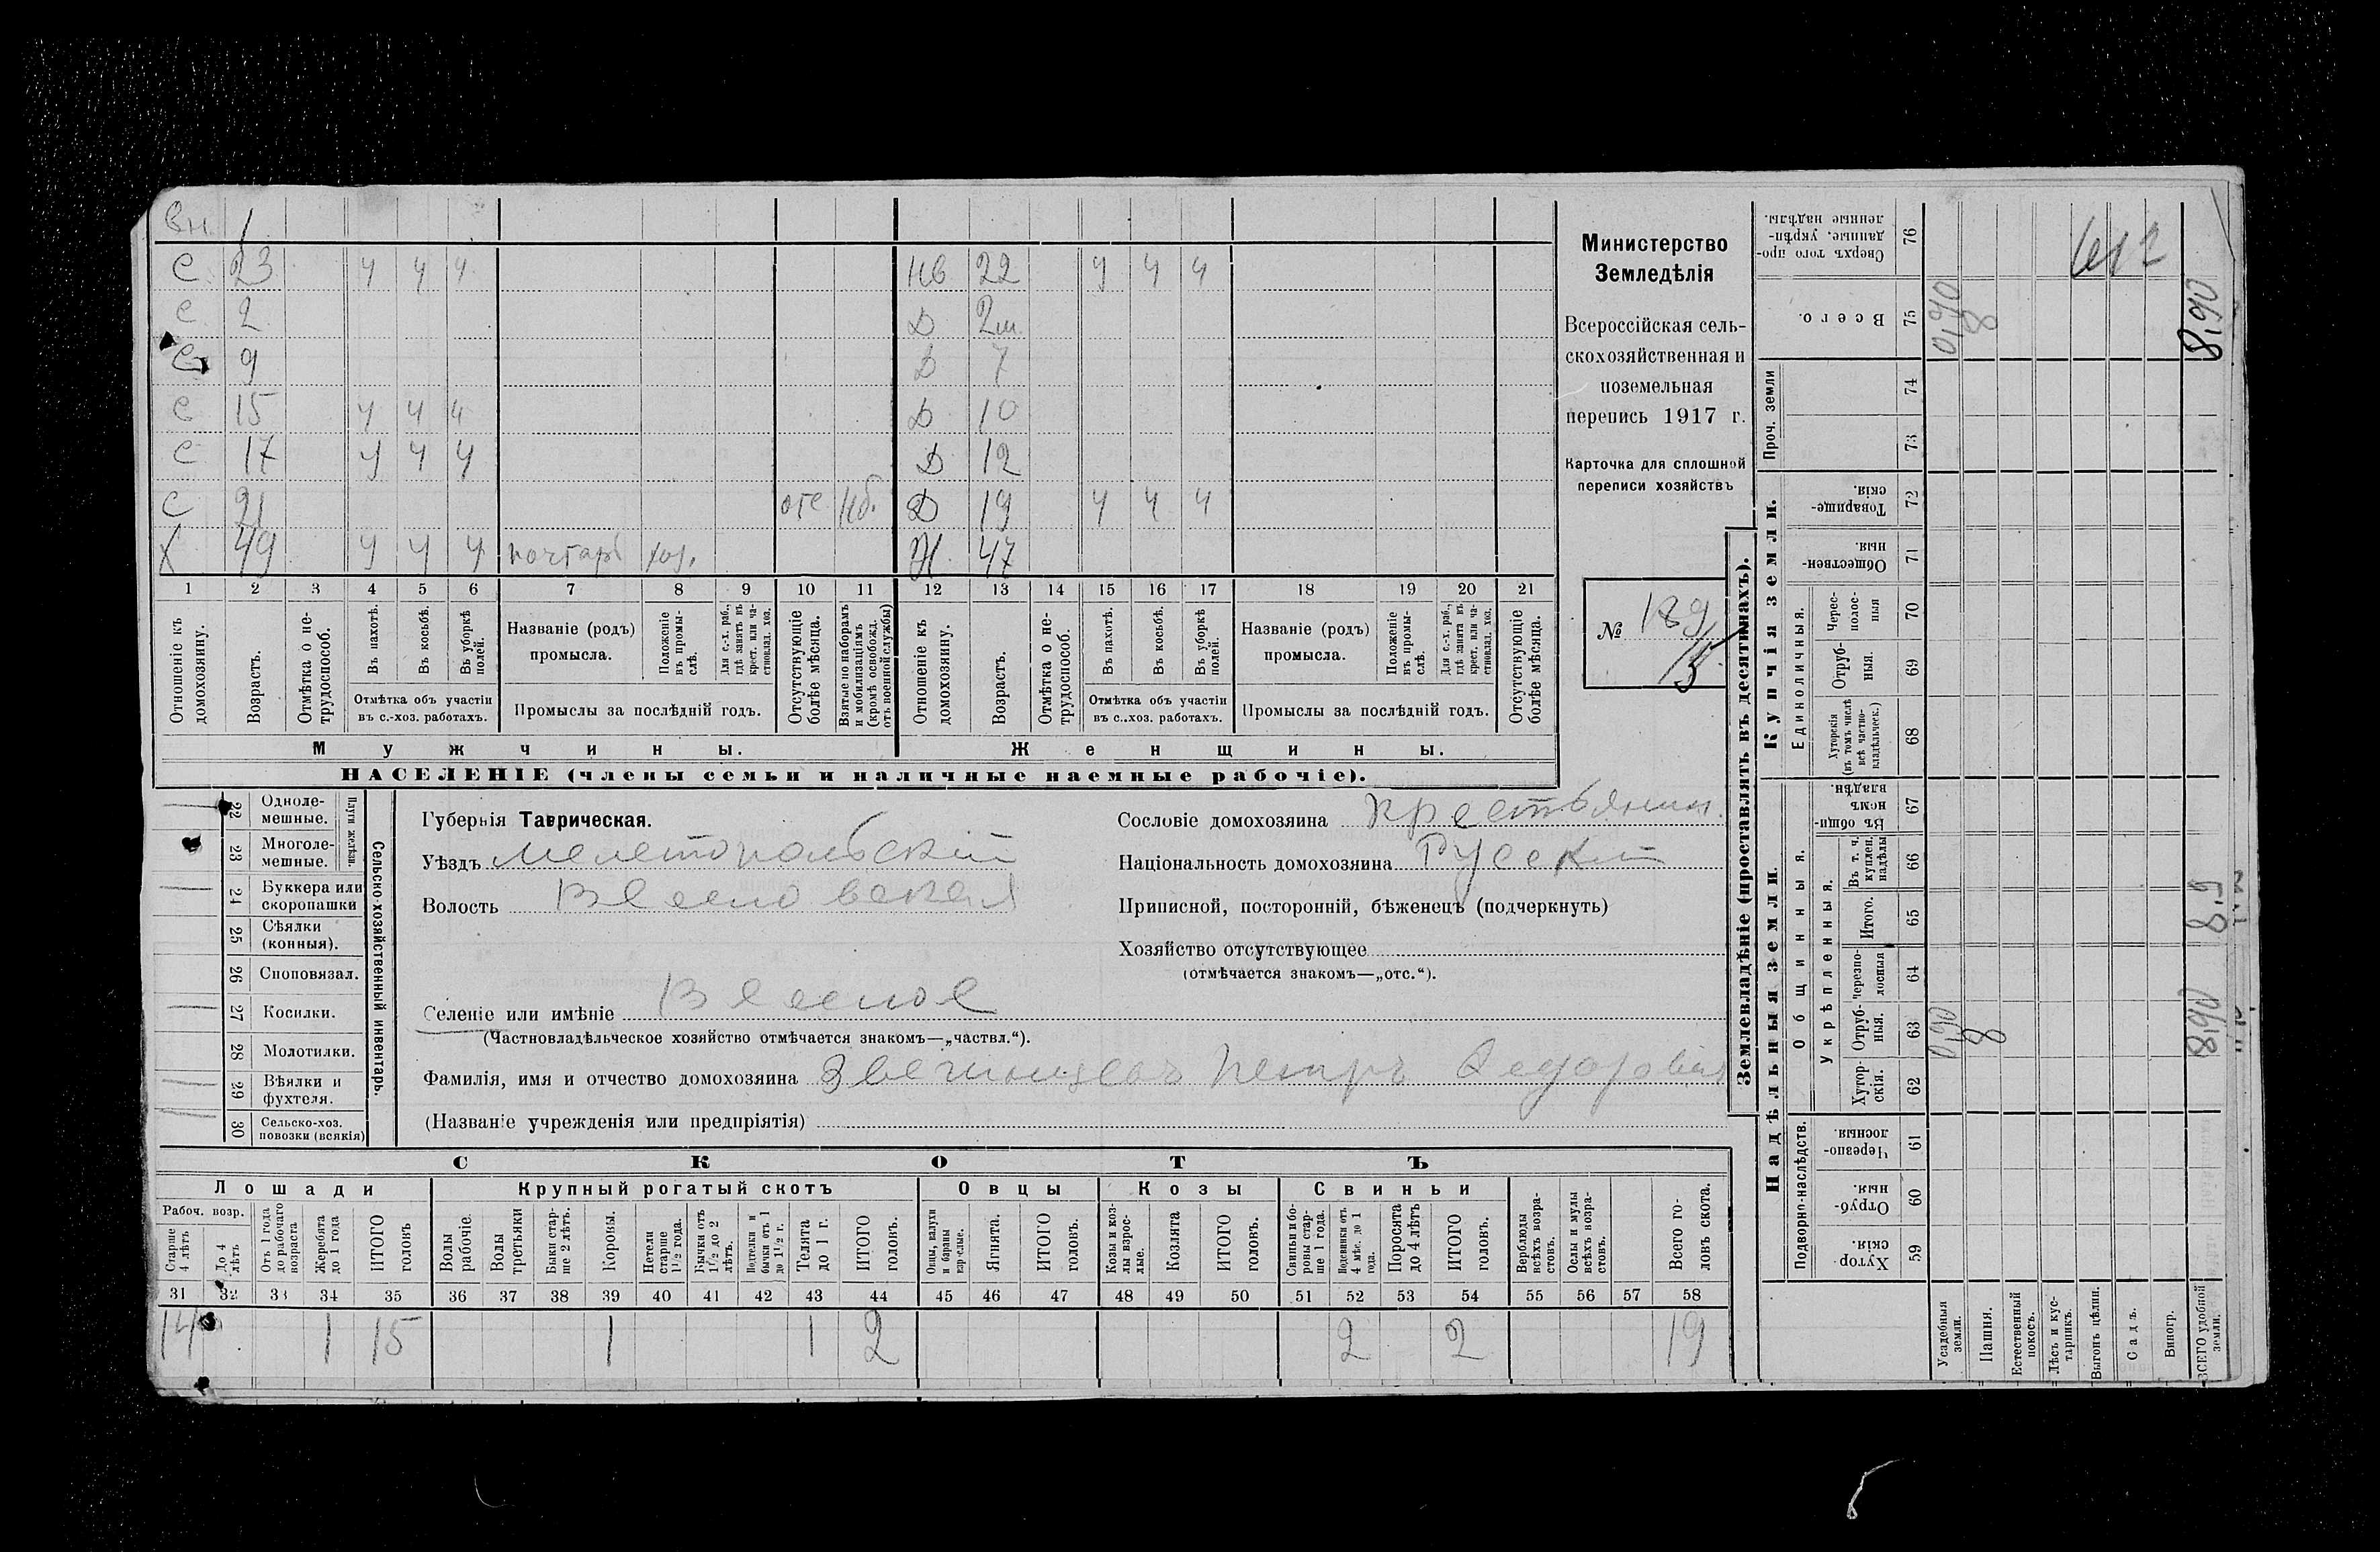 вн. 1
С 23 ч ч ч нв 22 ч ч ч
С 2 Д 2м.
С 9 Д 7
С 15 ч ч ч Д 10
С 17 ч ч ч Д 12
С 21 отс нб. Д 19 ч ч ч
Х 49 ч ч ч почтарь хоз. Ж 47
1 2 3 4 5 6 7 8 9 10 11 12 13 14 15 16 17 18 19 20 21
Отношеніе къ домохозяину.
Возрастъ.
Отмѣтка о не-трудоспособ.
Въ пахотѣ.
Въ косьбѣ.
Въ уборкѣ полей.
Отмѣтка объ участіи
въ с.-хоз. работахъ.
Названіе (родъ)
промысла.
Положеніе въ промы-слѣ.
Для с.-х. раб., гдѣ занятъ въ крест. или ча-стновлад. хоз.
Промыслы за послѣдній годъ.
Отсутствующіе болѣе мѣсяца.
Взятые по наборамъ и мобилизаціямъ (кромѣ освобожд. отъ военной службы)
Отношеніе къ домохозяину.
Возрастъ.
Отмѣтка о не-трудоспособ.
Въ пахотѣ.
Въ косьбѣ.
Въ уборкѣ полей.
Отмѣтка объ участіи
въ с.-хоз. работахъ.
Названіе (родъ)
промысла.
Положеніе въ промы-слѣ.
Для с.-х. раб., гдѣ занята въ крест. или ча-стновлад. хоз.
Промыслы за послѣдній годъ.
Отсутствующіе болѣе мѣсяца.
Мужчины. Женщины.
НАСЕЛЕНІЕ (члены семьи и наличные наемные рабочіе).
Министерство
Земледѣлія
Всероссійская сель-
скохозяйственная и
поземельная
перепись 1917 г.
Карточка для сплошной
переписи хозяйствъ
№ 189
15
22 Одноле-
мешные.
23 Многоле-
мешные.
Плуги желѣзн.
24 Буккера или
скоропашки
25 Сѣялки
(конныя).
26 Сноповязал.
27 Косилки.
28 Молотилки.
29 Вѣялки и
фухтеля.
30 Сельско-хоз.
повозки (всякія)
Сельско-хозяйственный инвентарь.
Губернія Таврическая.
Уѣздъ Мелетопольский
Волость Веселовская
Селеніе или имѣніе Веселое
(Частновладѣльческое хозяйство отмѣчается знакомъ—„частвл.“).
Фамилія, имя и отчество домохозяина Петръ
(Названіе учрежденія или предпріятія)
Сословіе домохозяина крестьянин.
Національность домохозяина Русский
Приписной, посторонній, бѣженецъ (подчеркнуть)
Хозяйство отсутствующее
(отмѣчается знакомъ—„отс.“).
СКОТЪ
Лошади Крупный рогатый скотъ Овцы Козы Свиньи
Рабоч. возр.
Старше 4 лѣтъ
До 4 лѣтъ
Отъ 1 года до рабочаго возраста
Жеребята до 1 года
ИТОГО головъ
Волы рабочіе.
Волы третьяки
Быки стар-ше 2 лѣтъ.
Коровы.
Нетели старше 1½ года.
Бычки отъ 1½ до 2 лѣтъ.
Подтелки и бычки отъ 1 до 1½ г.
Телята до 1 г.
ИТОГО головъ.
Овцы, валухи и бараны взрослые.
Ягнята.
ИТОГО головъ.
Козы и коз-лы взрос-лые.
Козлята
ИТОГО головъ.
Свиньи и бо-ровы стар-ше 1 года.
Подсвинки отъ 4 мѣс. до 1 года.
Поросята до 4 лѣтъ
ИТОГО головъ.
Верблюды всѣхъ возра-стовъ.
Ослы и мулы всѣхъ возра-стовъ.
Всего го-ловъ скота.
31 32 33 34 35 36 37 38 39 40 41 42 43 44 45 46 47 48 49 50 51 52 53 54 55 56 57 58
14 1 15 1 1 2 2 2 19
Землевладѣніе (проставлять въ десятинахъ).
Надѣльныя земли.
Купчія земли.
Проч. земли
Подворно-наслѣдств.
Общинныя.
Укрѣпленныя.
Единоличныя.
Хутор-скія. 59
Отруб-ныя. 60
Черезпо-лосныя. 61
Хутор-скія. 62
Отруб-ныя. 63
Черезпо-лосныя 64
Итого. 65
Въ т. ч. куплен. надѣлы 66
Въ общин-номъ владѣн. 67
Хуторскія (въ томъ числѣ всѣ частно-владѣльческ.) 68
Отруб-ныя. 69
Черес-полос-ныя 70
Обществен-ныя. 71
Товарище-скія. 72
73
74
Всего. 75
Сверхъ того про-данные, укрѣп-ленные надѣлы. 76
Усадебныя земли. 0,90 0,90
Пашня. 8 8
Естественный покосъ.
Лѣсъ и кус-тарникъ.
Выгонъ цѣлин.
Садъ.
Виногр.
ВСЕГО удобной земли. 8,90 8,9 8,90
612